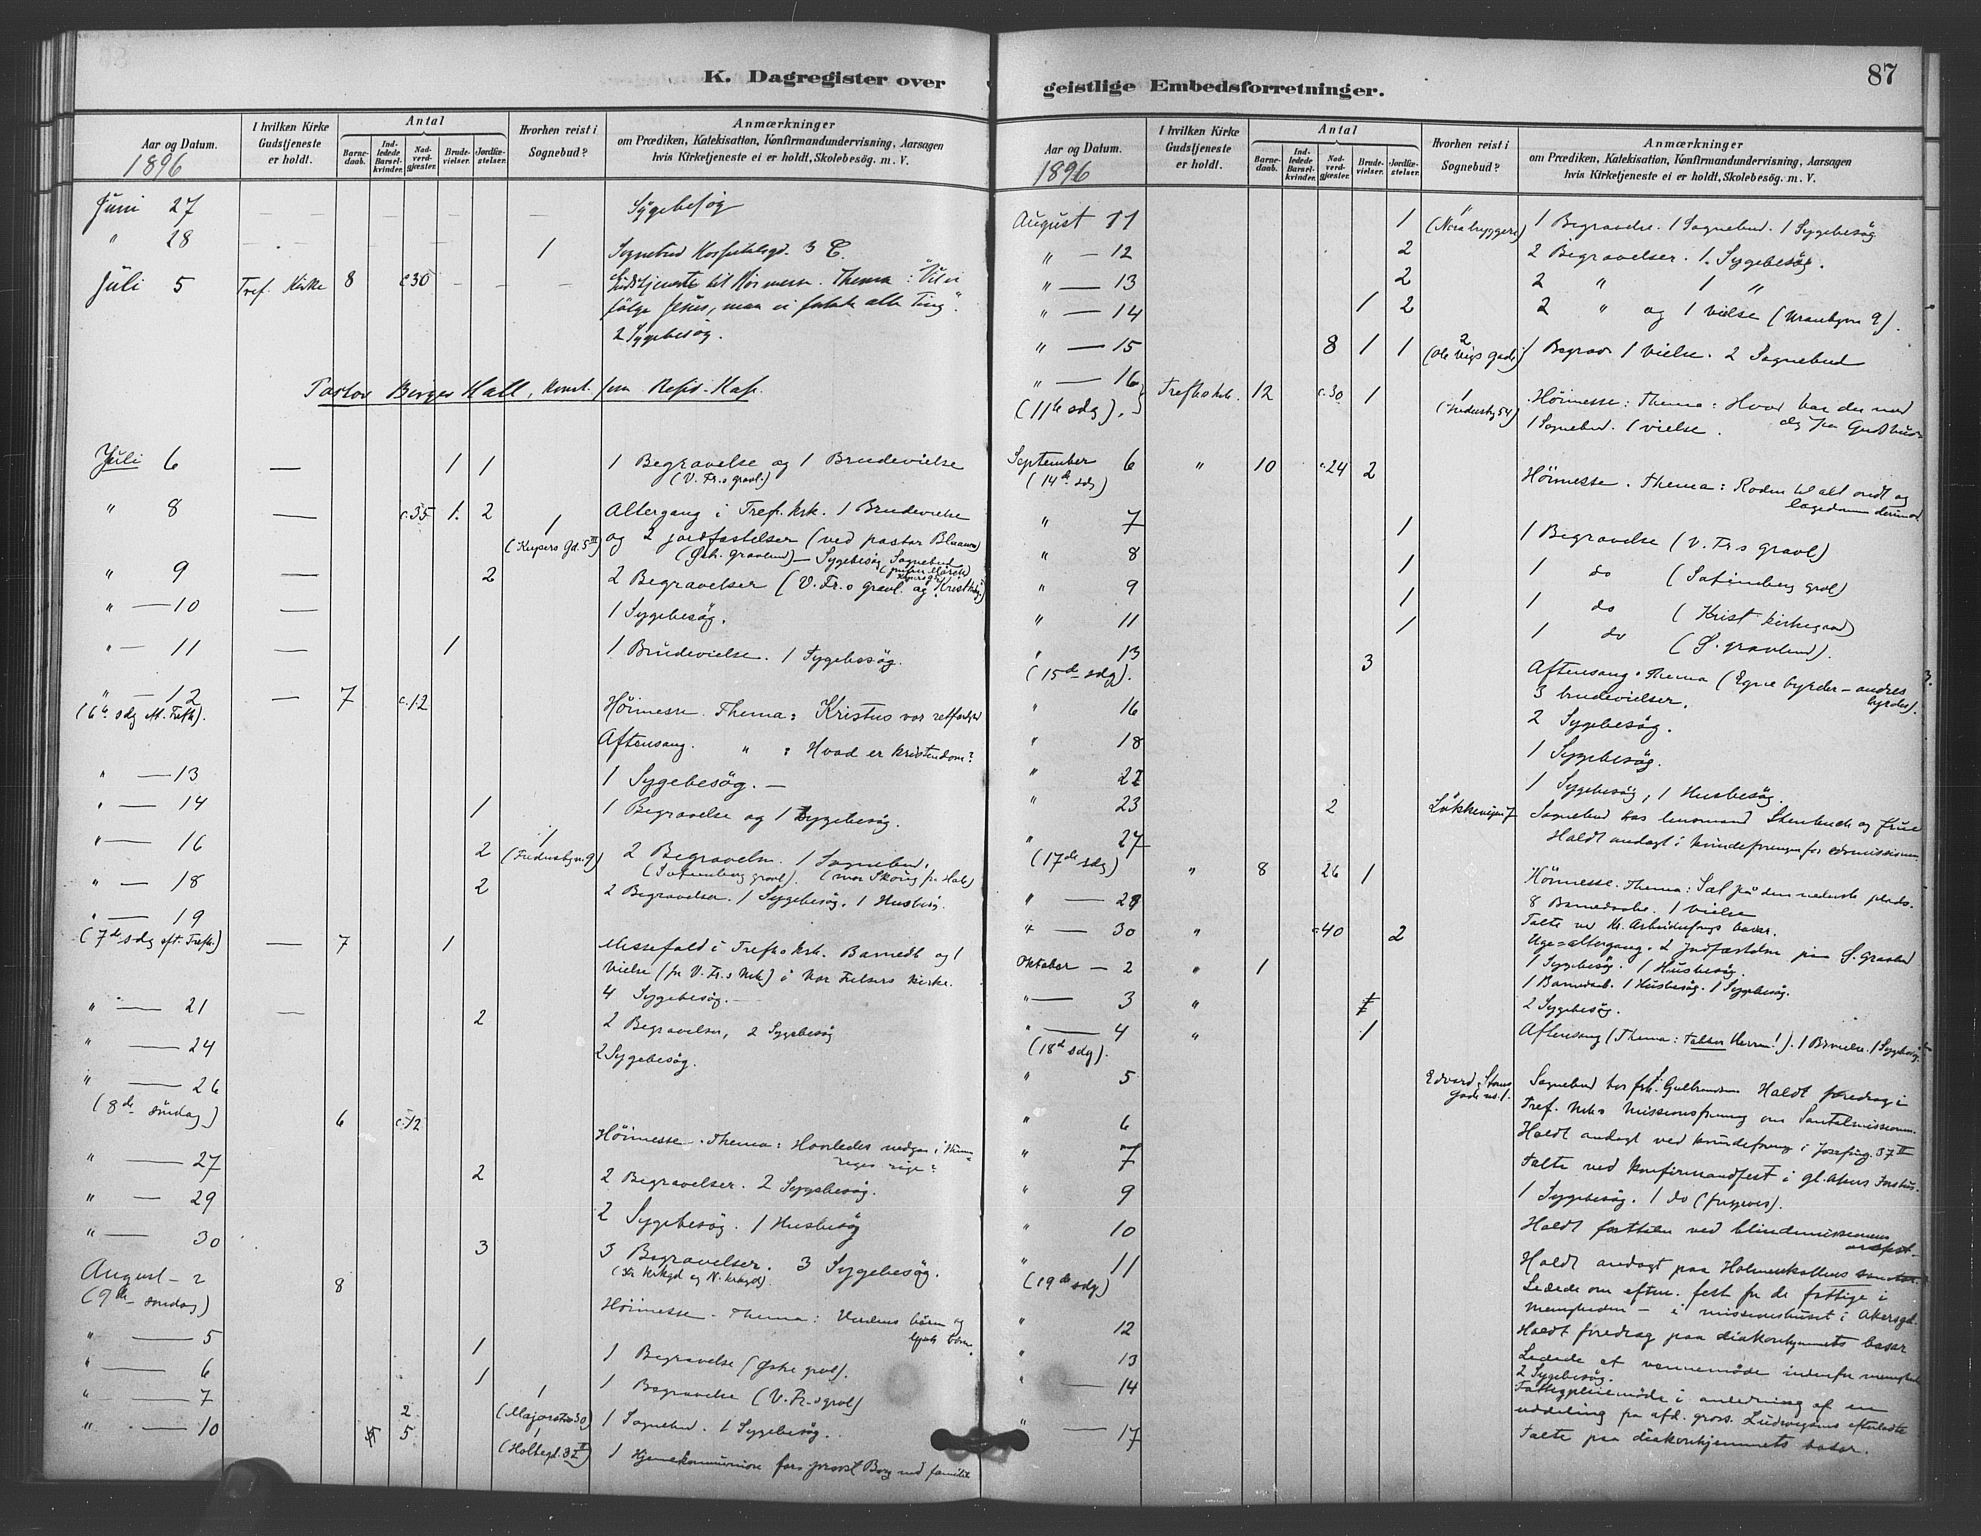 K. Dagregister over
Aar og Datum.
1896
I hvilken Kirke
Gudstjeneste
er holdt.
Antal
Barne-
daab.
Ind-
ledede
Barsel-
kvinder.
Nad-
verd-
gjæster.
Brude-
vielser.
Jordfæ-
stelser.
Hvorhen reist i
Sognebud?
Anmærkninger
om Prædiken, Katekisation, Konfirmandundervisning, Aarsagen
hvis Kirketjeneste ei er holdt, Skolebesøg. m. V.
Juni 27 Sygebesøg
" 28 1 Sognebud Hospitalsgd. 3 C.
Juli 5 Tref. Kirke 8 c. 30 Gudstjeneste til Høimesse. Thema: "Vil vi
følge Jesus, maa vi forlate alle Ting".
2 Sygebesøg.
Pastor Birger Hall, konst. som Resid. Kap.
Juli 6 — 1 1 1 Begravelse og 1 Brudevielse
(V. Fr.s gravl.)
" 8 — c. 35 1. 2 Altergang i Tref. krk. 1 Brudevielse
1 og 2 jordfæstelser (ved pastor
(Keysers Gd. 5 III) (Øst. gravlund) — Sygebesøg Sognebud
" 9 — 2 2 Begravelser (V. Fr.s gravl. og
" — 10 — 1 Sygebesøg.
" — 11 — 1 1 Brudevielse. 1 Sygebesøg.
" — 12 — 7 c. 12 Høimesse. Thema: Kristus vor retfærdighed
(6te sdg eft. Trefh). Aftensang. " : Hvad er kristendom?
" — 13 1 Sygebesøg. —
" — 14 1 1 Begravelse og 1 Sygebesøg.
" — 16 2 1 2 Begravelser. 1 Sognebud.
" — 18 2 2 Begravelser. 1 Sygebesøg. 1 Husbesøg.
" — 19
(7de sdg eft. Trefh.) — 7 1 Messefald i Trefh.s krk. Barnedb og 1
vielse (for V. Fr.s Mrk) i Vor Frelsers kirke.
4 Sygebesøg. —
" — 21 — 2 2 Begravelser, 2 Sygebesøg
" — 24 2 Sygebesøg.
" — 26
(8de søndag) 6 c. 12 Høimesse. Thema: Hvorledes nedgaa i Him-
riges rige?
" — 27 2 2 Begravelser. 2 Sygebesøg.
" — 29 2 Sygebesøg. 1 Husbesøg
" — 30 3 3 Begravelser. 3 Sygebesøg.
August — 2
(9de søndag) 8 Høimesse — Thema: Verdens børn og
lysets børn.
" — 5 1 1 Begravelse (Østre gravl).
" — 6 1 1 Begravelse (V. Fr.s gravl)
" — 7 2 1 (Majorstv 30) 1 Sognebud. 1 Sygebesøg.
" — 10 5 1 (Holtegd. 3 II) 1 Hjemmekommunion hos provst Borg med familie
geistlige Embedsforretninger.
87
Aar og Datum.
1896
I hvilken Kirke
Gudstjeneste
er holdt.
Antal
Barne-
daab.
Ind-
ledede
Barsel-
kvinder.
Nad-
verd-
gjæster.
Brude-
vielser.
Jordfæ-
stelser.
Hvorhen reist i
Sognebud?
Anmærkninger
om Prædiken, Katekisation, Konfirmandundervisning, Aarsagen
hvis Kirketjeneste ei er holdt, Skolebesøg. m. V.
August 11 1 1 Begravelse. 1 Sognebud. 1 Sygebesøg
" — 12 2 2 Begravelser. 1. Sygebesøg.
" — 13 2 2 " 1 "
" — 14 1 2 2 " og 1 vielse (Uranbgvn 9).
" — 15 8 1 1 2 (Ole Vigs Gade) Begrav 1 vielse. 2 Sognebud
" — 16
(11te sdg). Trefh.s krk. 12 c. 30 1 1 Høimesse: Thema: Hvor har du ned
1 Sognebud. 1 vielse.
September 6 " 10 c. 24 2 Høimesse. Thema: Roden til alt ondt og
(14de sdg) lægedommen derimod
" 7 1 1 Begravelse (V. Fr.s gravl)
" 8 1 1 do (Sofienberg gravl)
" 9 1 1 do (Krist kirkegaard)
" 11 1 1 do (Ø. gravlund).
" 13
(15de sdg). 3 Aftensang. Thema (Egne byrder — andres
byrder).
3 brudevielser.
" 16 2 Sygebesøg.
" 18 1 Sygebesøg.
" 22 1 Sygebesøg, 1 Husbesøg.
" 23 2 Løkkeveien 7 Sognebud hos lensmand Stenbuch og frue
Holdt andagt i kvindeforeningen for
" 27
(17de sdg) " 8 26 1 Høimesse. Thema: Sæt paa den nederste plads.
8 Barnedaab. 1 vielse
" — 29 Talte ved Kr. Arbeiderfngs basar.
" — 30 " c. 40 2 Uge-altergang. 2 Jordfæstelser paa Ø. Gravlund
1 Sygebesøg. 1 Husbesøg.
Oktober — 2 " 1 1 Barnedaab. 1 Husbesøg. 1 Sygebesøg.
" — 3 " 2 Sygebesøg.
" — 4 " 1 Aftensang (Thema: Takker Herren!). 1 Brvielse. 1 Sygebesøg
(18de sdg).
" 5 Edvard Storms
gade no. 1. Sognebud hos frk. Gulbrandsen Holdt foredrag i
Tref. Mks Missionsforening om Santalmissionen.
" 6 Holdt andagt ved kvindeforening i Josefing. 37 II
" 7 Talte ved konfirmandfest i gl. Akers
" 9 1 Sygebesøg. 1 do (forgjæves).
" 10 Holdt ved blindemissionens
" 11 Holdt andagt paa Holmenkollens
(19de sdg) Ledede om efterm. fest for de fattige i
menigheden — i missionshuset i Akersgd.
" 12 Holdt foredrag paa diakonhjemmets basar
" 13 Ledede et vennemøde indenfor menighed
" — 14 2 Sygebesøg.
Fattigpleiemøde i anledning af en
uddeling fra afd. gross. Ludwigsens efterladte
" — 17 Talte paa diakonhjemmets basar.